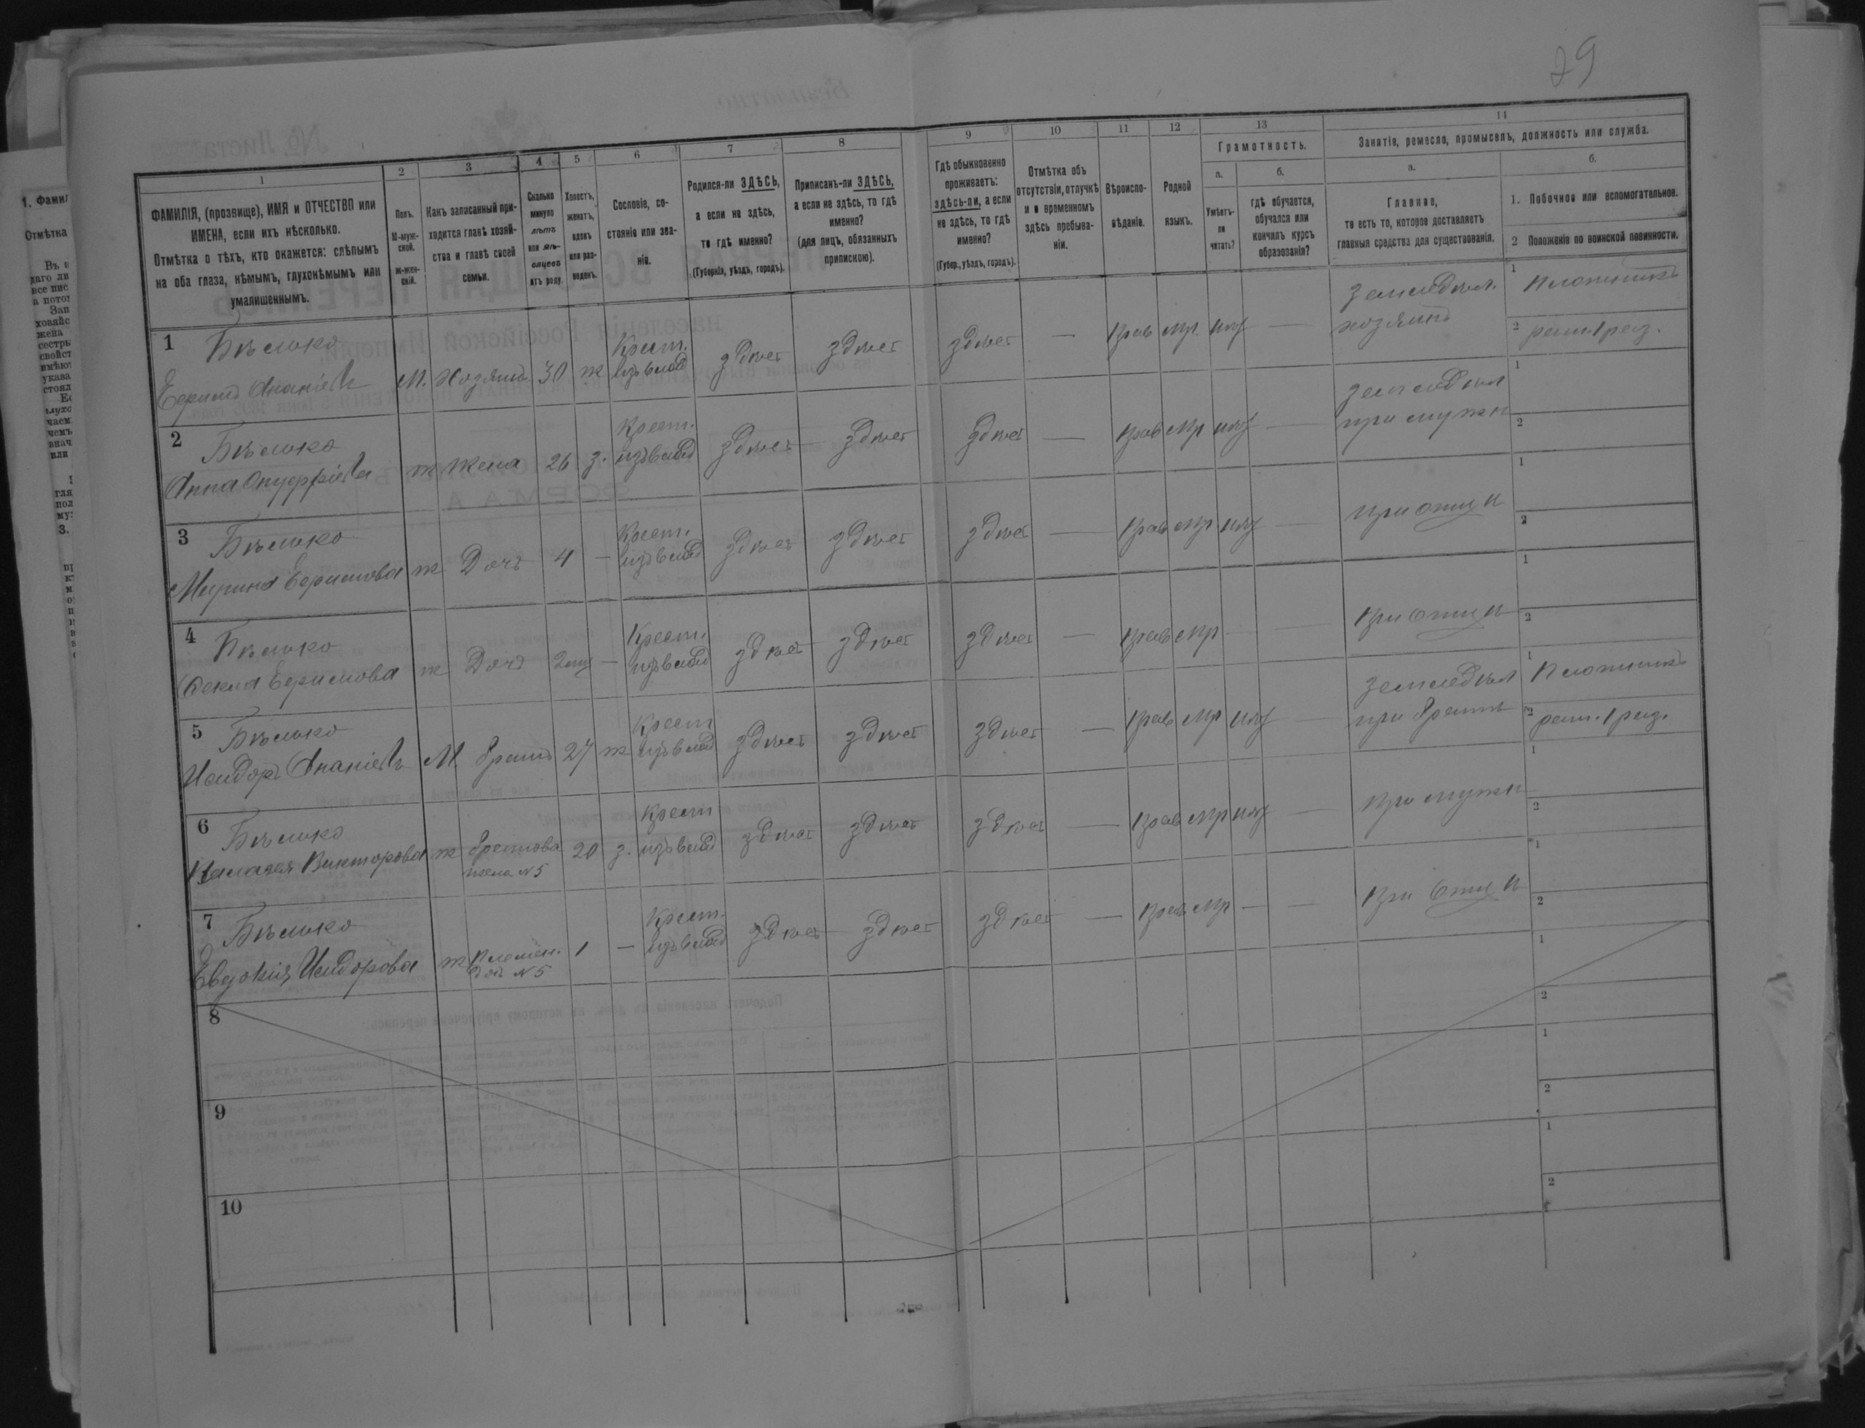 29
1
ФАМИЛІЯ, (прозвище), ИМЯ и ОТЧЕСТВО или
ИМЕНА, если ихъ нѣсколько.
Отмѣтка о тѣхъ, кто окажется: слѣпымъ
на оба глаза, нѣмымъ, глухонѣмымъ или
умалишеннымъ.
2
Полъ.
М-муж-
ской.
Ж-жен-
скій.
3
Какъ записанный при-
ходится главѣ хозяй-
ства и главѣ своей
семьи.
4
Сколько
минуло
лѣтъ
или мѣ-
сяцевъ
отъ роду.
5
Холостъ,
женатъ,
вдовъ
или раз-
веденъ.
6
Сословіе, со-
стояніе или зва-
ніе.
7
Родился-ли ЗДѢСЬ,
а если не здѣсь,
то гдѣ именно?
(Губернія, уѣздъ, городъ).
8
Приписанъ-ли ЗДѢСЬ,
а если не здѣсь, то гдѣ
именно?
(для лицъ, обязанныхъ
припискою).
9
Гдѣ обыкновенно
проживаетъ:
здѣсь-ли, а если
не здѣсь, то гдѣ
именно?
(Губер., уѣздъ, городъ).
10
Отмѣтка объ
отсутствіи, отлучкѣ
и о временномъ
здѣсь пребыва-
ніи.
11
Вѣроиспо-
вѣданіе.
12
Родной
языкъ.
13
Грамотность.
а.
Умѣетъ-
ли
читать?
б.
гдѣ обучается,
обучался или
кончилъ курсъ
образованія?
14
Занятіе, ремесло, промыселъ, должность или служба.
а.
Главное,
то есть то, которое доставляетъ
главныя средства для существованія.
б.
1. Побочное или вспомогательное.
2. Положеніе по воинской повинности.
1
Бѣлько
Ефимъ Ананіевъ
М. Хозяинъ 30 ж
Крест.
изъ влад
здѣсь здѣсь здѣсь — Прав мр. нѣт —
Земледѣл.
хозяинъ
1 Плотникъ
2 рат. 1 раз.
2
Бѣлько
Анна Онуфріева
ж Жена 26 з.
Крест.
изъ влад
здѣсь здѣсь здѣсь — Прав мр нѣт —
Земледѣл
при мужѣ
1
2
3
Бѣлько
Марина Ефимова
ж Дочь 4 —
Крест.
изъ влад
здѣсь здѣсь здѣсь — Прав мр нѣт —
При отцѣ
1
2
4
Бѣлько
Фекла Ефимова
ж Дочь —
Крест.
изъ влад
здѣсь здѣсь здѣсь — Прав мр — —
При отцѣ
1
2
5
Бѣлько
Исидоръ Ананіевъ
М. братъ 27 ж
Крест
изъ влад
здѣсь здѣсь здѣсь — Прав мр нѣт —
Земледѣл
при братѣ
1 Плотникъ
2 рат. 1 раз.
6
Бѣлько
Викторова
ж братова
жена №5
20 з.
Крест
изъ влад
здѣсь здѣсь здѣсь — Прав мр нѣт —
При мужѣ
1
2
7
Бѣлько
Евдокія Исидорова
ж Племен.
доч №5
1 —
Крест.
изъ влад
здѣсь здѣсь здѣсь — Прав мр — —
При отцѣ
1
2
8
1
2
9
1
2
10
1
2